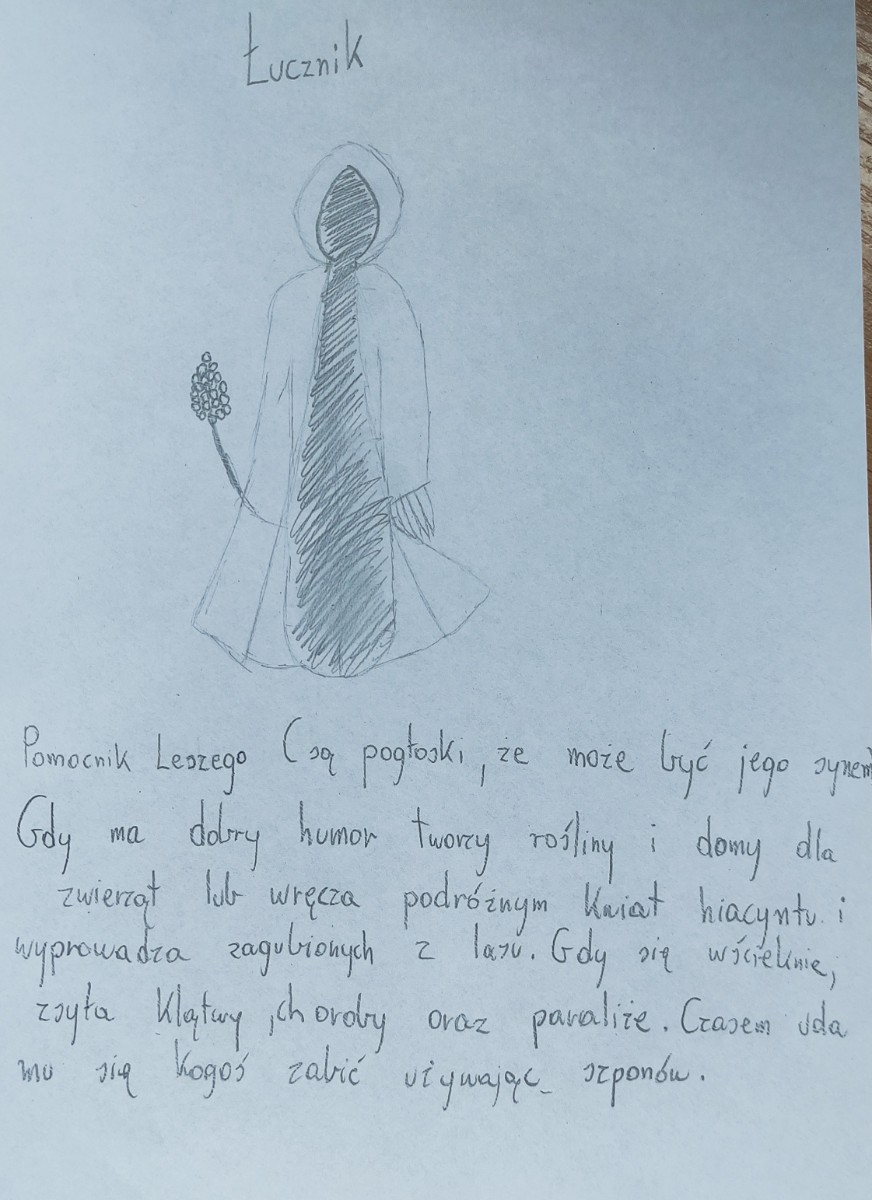 Łucznik
Pomocnik Leszego (są pogłoski, że może być jego synem
Gdy ma dobry humor tworzy rośliny i domy dla
zwierząt lub wręcza podróżnym kwiat hiacyntu i
wyprowadza zagubionych z lasu. Gdy się wścieknie,
zsyła klątwy, choroby oraz paraliże. Czasem uda
mu się kogoś zabić używając szponów.